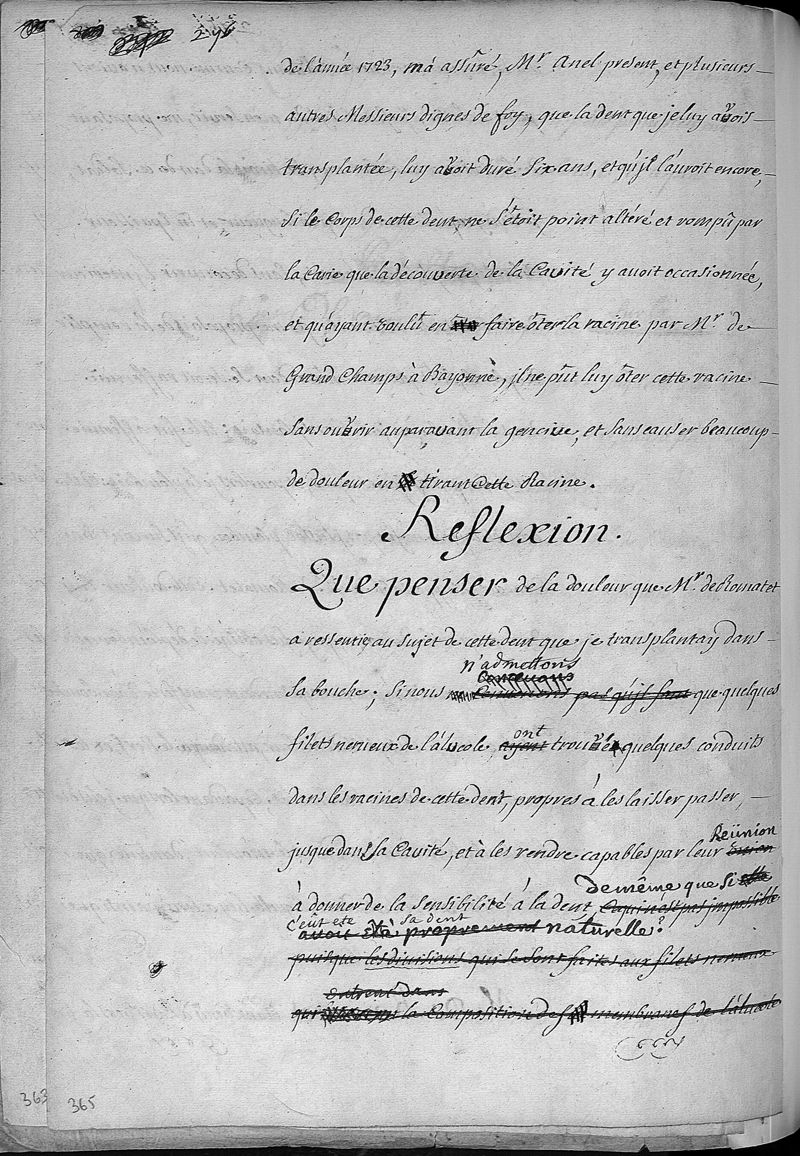 296
de l'année 1723, m'a assuré, Mr. Anel present, et plusieurs
autres Messieurs dignes de foy, que la dent que je luy avois
transplantée, luy avoit duré six ans, et qu'jl l'auroit encore,
si le Corps de cette dent, ne s'étoit point altéré et rompû par
la Carie que la découverte de la Cavité y avoit occasionnée,
et qu'ayant voulû en faire ôter la racine par Mr. de
Grand Champs à Bayonne, jl ne pût luy ôter cette racine
sans ouvrir auparavant la gencive, et sans causer beaucoup
de douleur en tirant Cette Racine.
Reflexion.
Que penser de la douleur que Mr. de Romatet
a ressentie, au sujet de cette dent que je transplantay dans
n'admettons
Concevons
sa bouche; si nous pas qu'jl sont que quelques
ont
filets nerveux de l'alveole, ayent trouvé quelques conduits
dans les racines de cette dent, propres à les laisser passer,
Reünion
jusque dans sa Cavité, et à les rendre capables par leur
de même que si elle
à donner de la sensibilité à la dent, Ce qui n'est pas jmpossible
c'eût eté sa dent
avoit eté proprement naturelle?
puisque les divisions qui se sont faites aux filets nerveux
entrent dans
qui la Composition des membranes de l'alveole
363
365